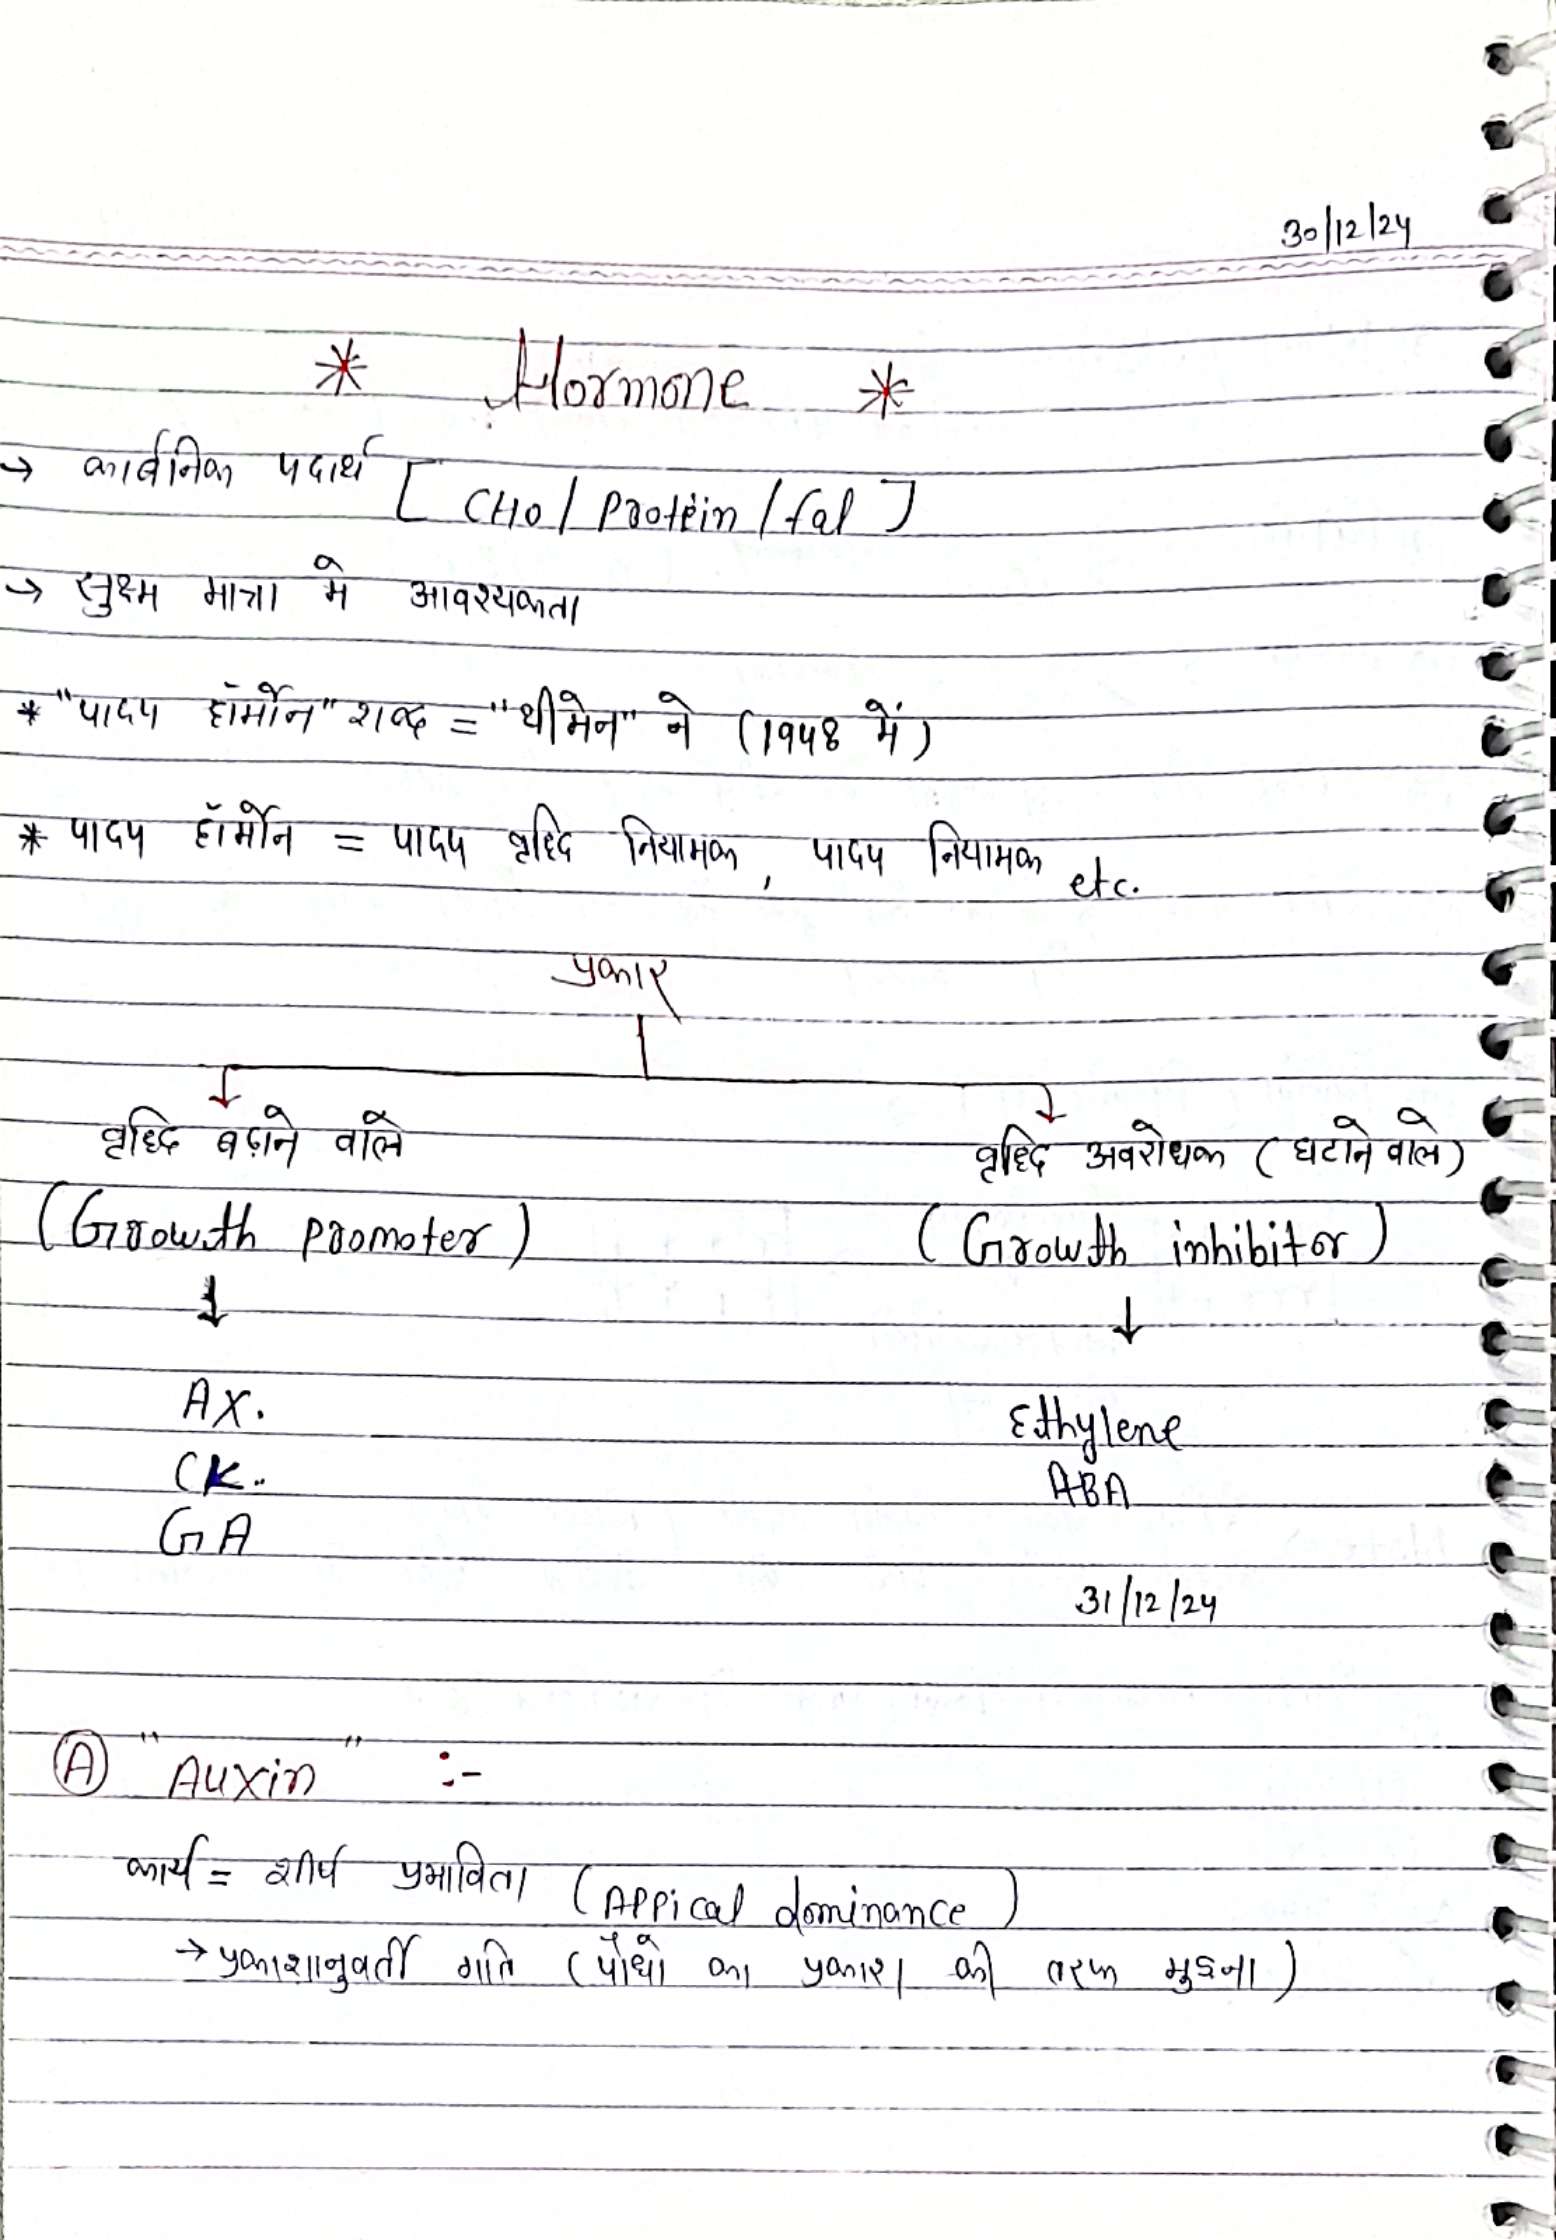 30/12/24
* Hormone *
→ कार्बनिक पदार्थ [CHO/Protein/fat]
→ सुक्ष्म मात्रा मे आवश्यकता
* "पादप हॉर्मोन" शब्द = "थीमेन" ने (1948 में)
* पादप हॉर्मोन = पादप वृद्धि नियामक, पादप नियामक etc.
प्रकार
वृद्धि बढ़ाने वाले वृद्धि अवरोधक (घटाने वाले)
(Growth promoter) (Growth inhibitor)
↓ ↓
AX. Ethylene
CK.. ABA
GA
31/12/24
Ⓐ "Auxin" :-
कार्य = शीर्ष प्रभाविता (Appical dominance)
→ प्रकाशानुवर्ती गति (पौधो का प्रकाश की तरफ मुडना)